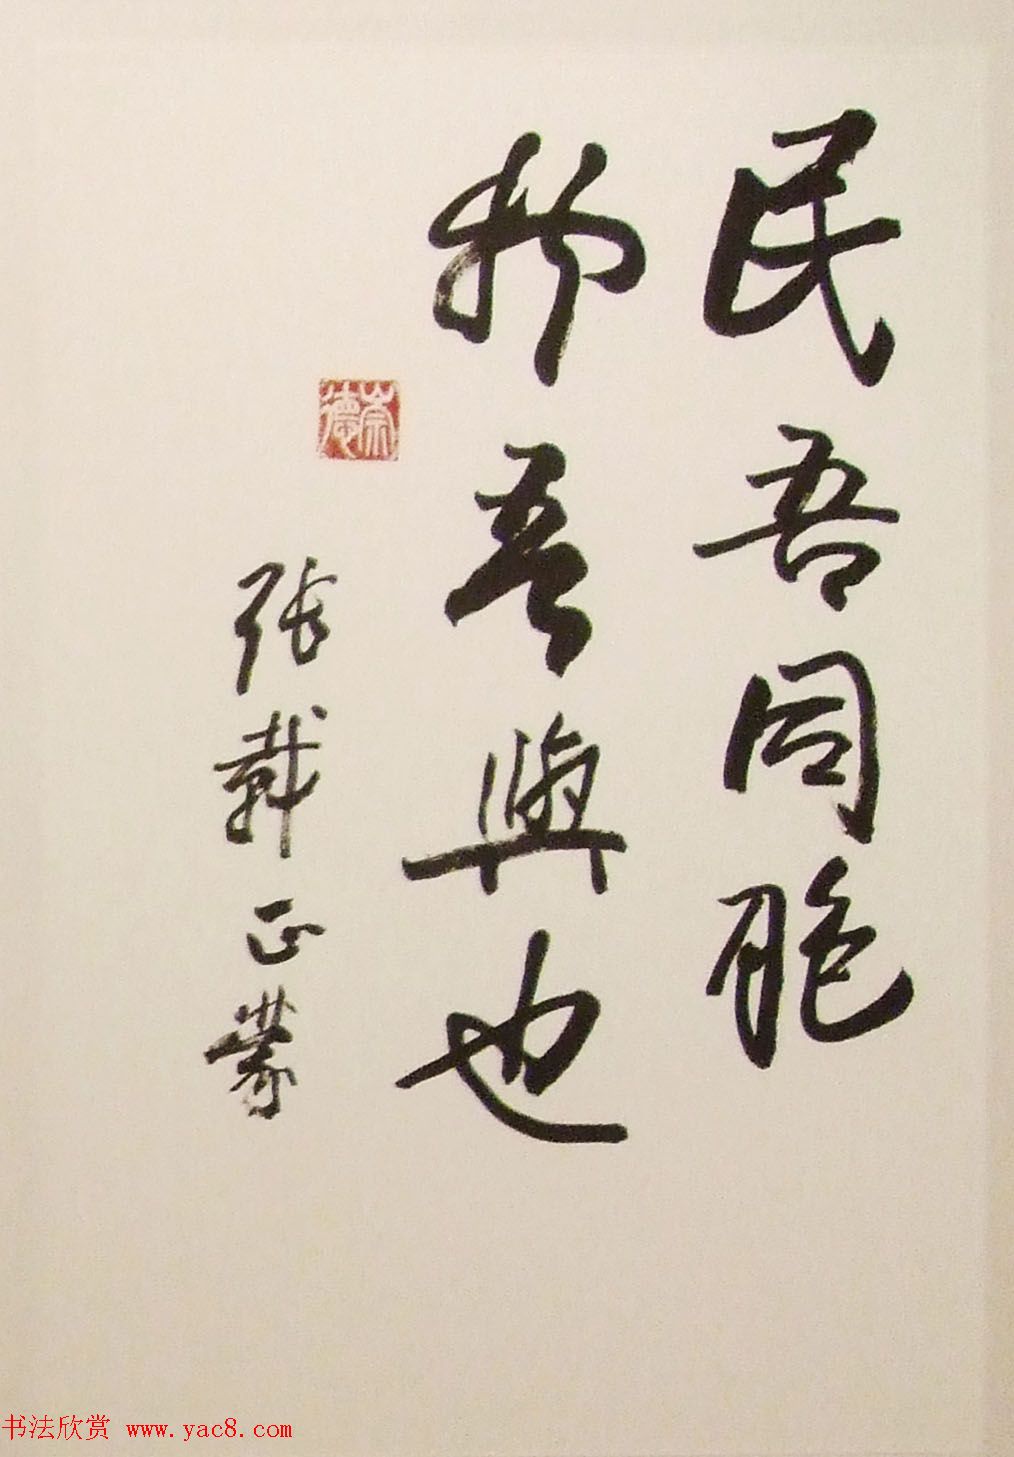 民吾同胞
物吾與也
張載正蒙
崇德
书法欣赏 www.yac8.com